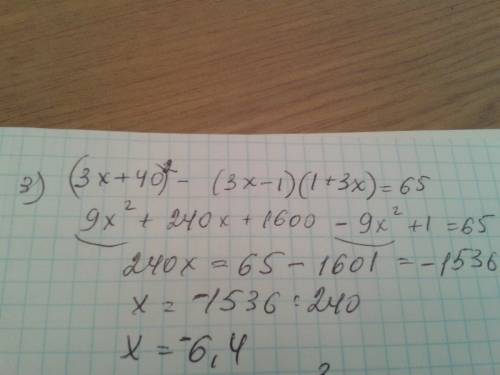 3) (3x+40)² - (3x-1)(1+3x)=65
9x² + 240x + 1600 - 9x² + 1 = 65
240x = 65 - 1601 = -1536
x = -1536 : 240
x = -6,4